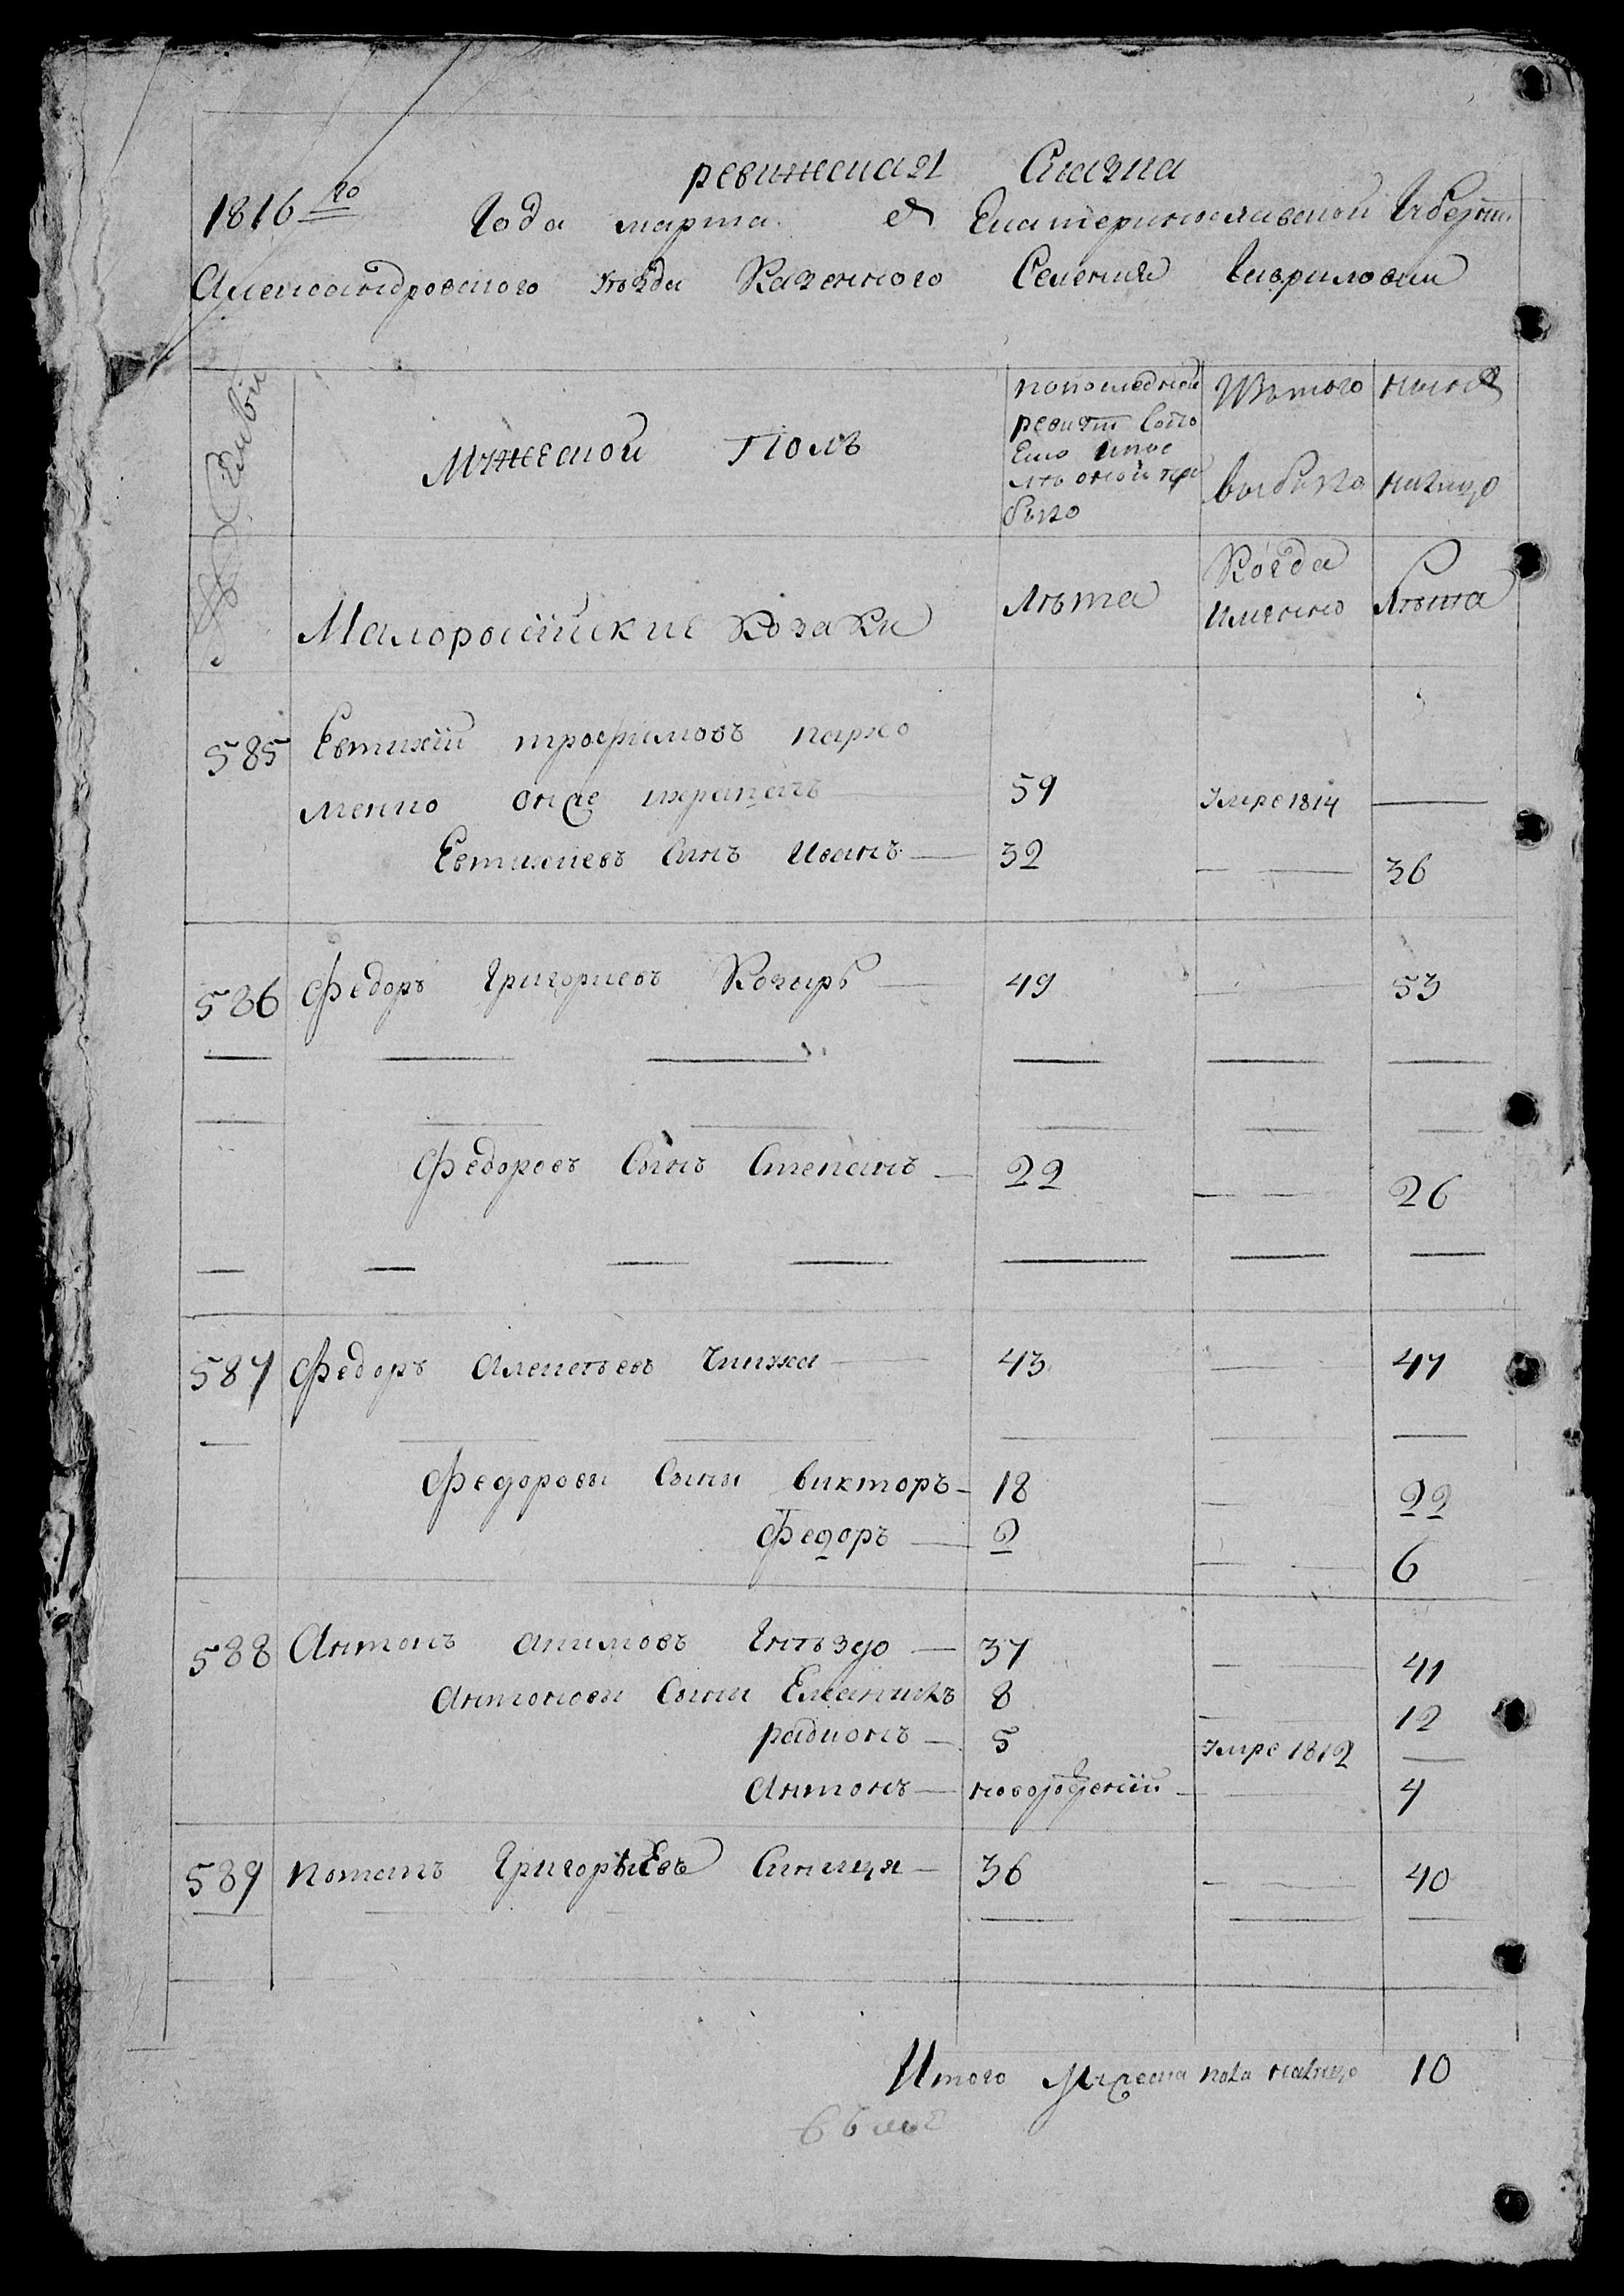 ревижская Сказка
1816го Года марта Екатеринославской Губернии
Александровского уѣзда Казенного Селения Гавриловки
Мужеской Полъ
попоследней ревизіи состо
яло
было
Изътого
выбыло
ныне
налицо
Малоросийские Козаки
Лѣта
Когда
имянно
Лѣта
585 Евтихій трофимовъ пархо
менко онже 59 умре 1814 —
Евтихиевъ Синъ Иванъ — 32 — 36
586 Федоръ Григориевъ Козырь — 49 — 53
Федоровъ Сынъ Степанъ — 22 — 26
587 Федоръ Алексѣевъ Чижка — 43 — 47
Федоровы Сыны викторъ — 18 — 22
Федоръ — 2 — 6
588 Антонъ акимовъ Гнѣздо — 37 — 41
Антоновы Сыны 8 — 12
радионъ — 5 умре 1812 —
Антонъ — новорожденній — 4
589 потапъ Григорьевъ Синиця — 36 — 40
Итого Мужеска пола налицо 10